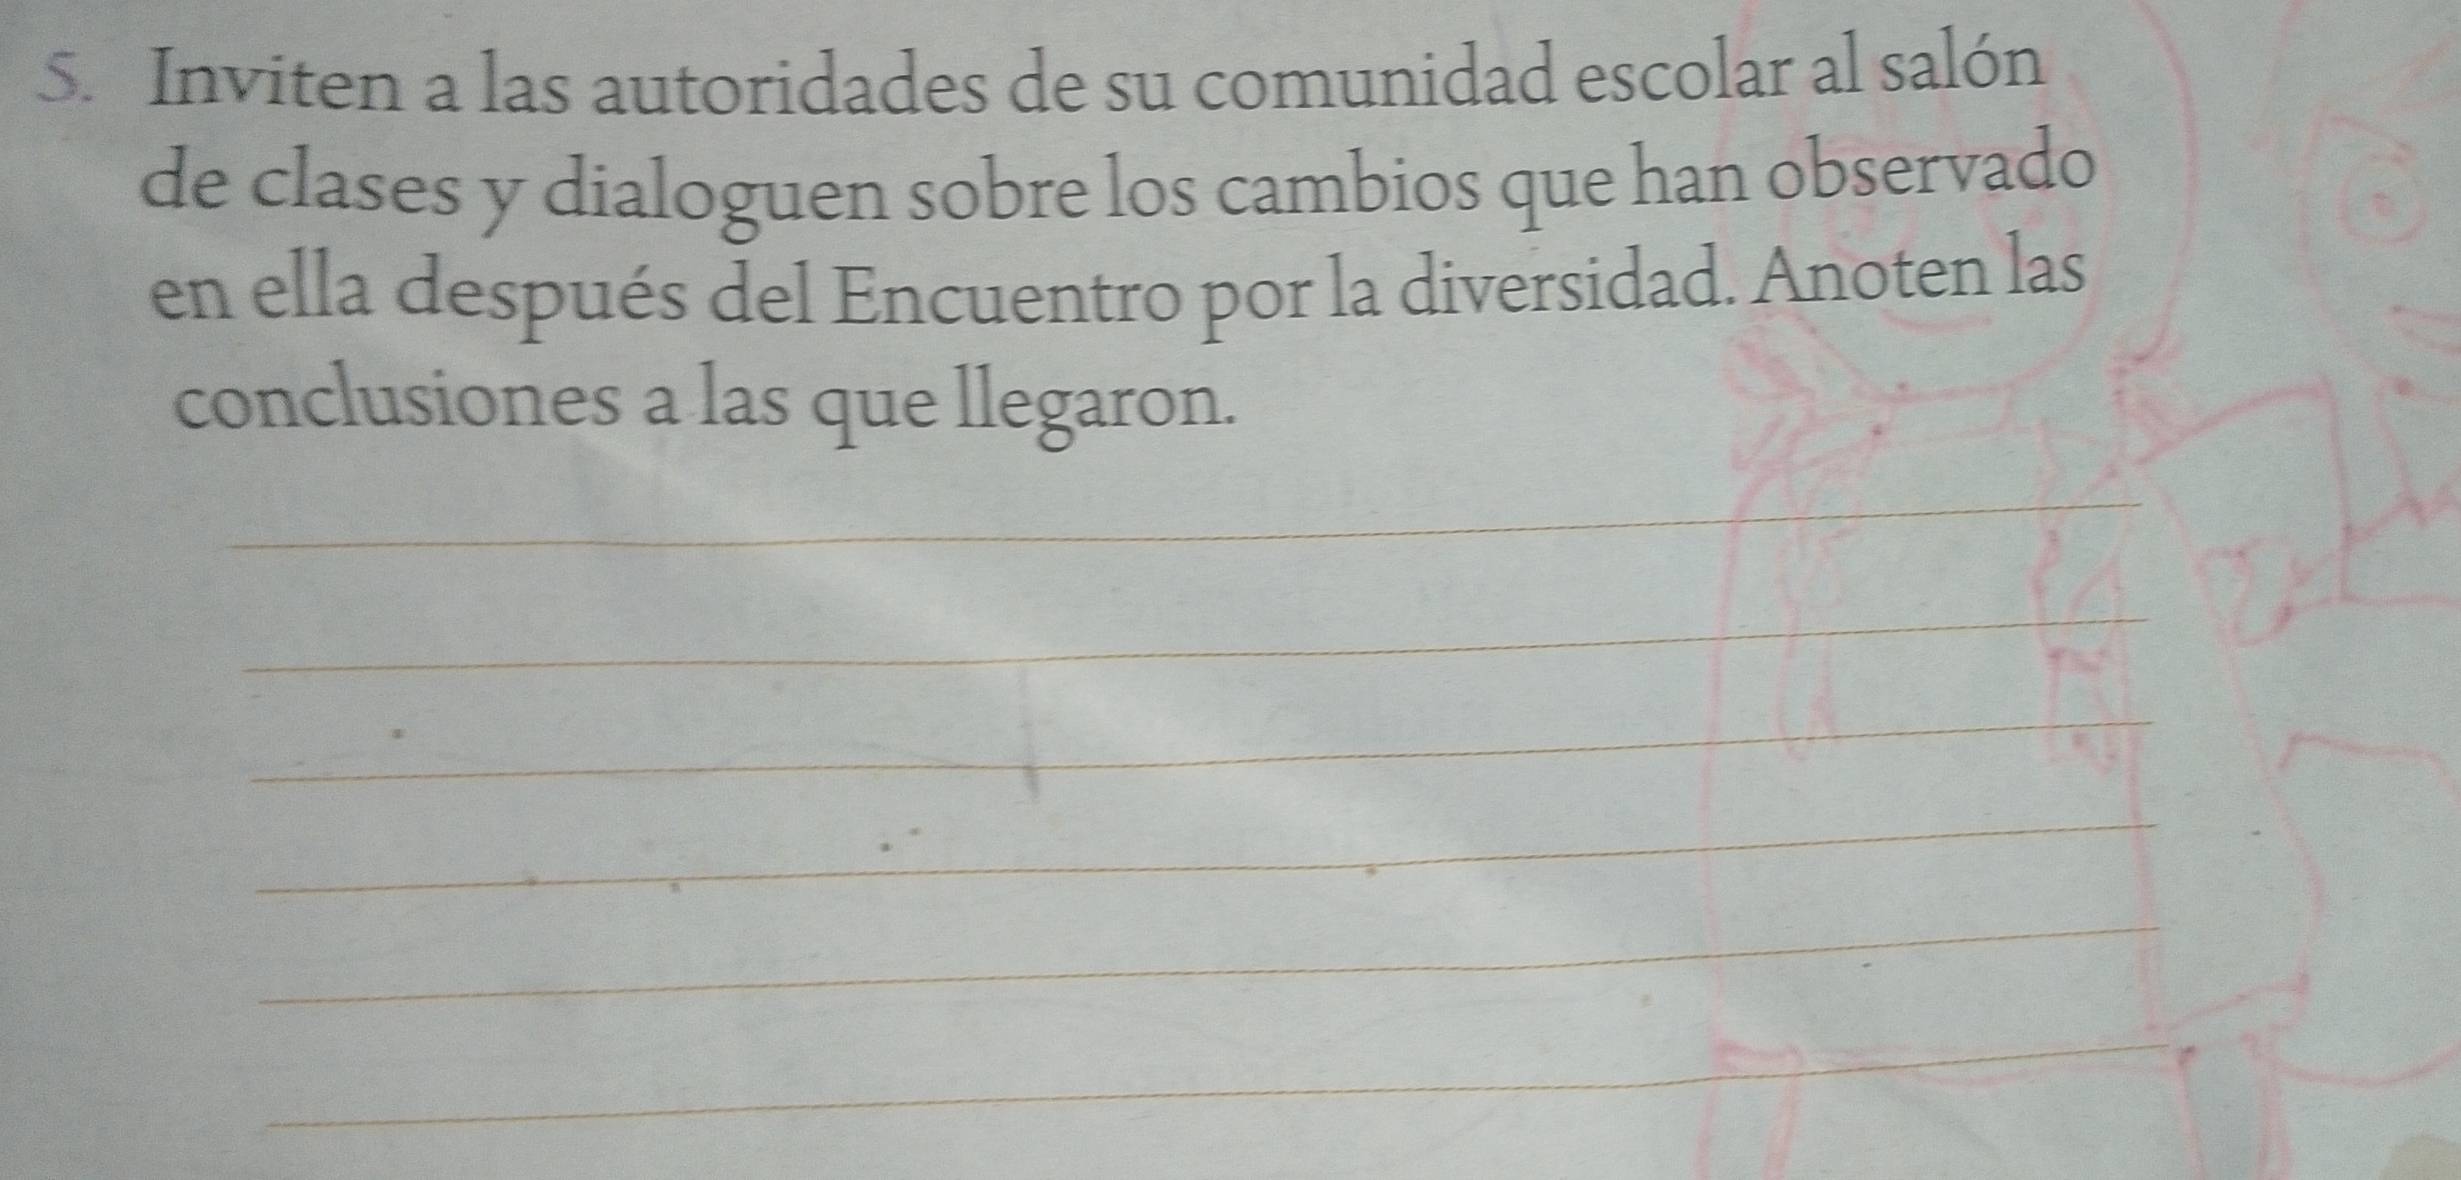 5. Inviten a las autoridades de su comunidad escolar al salón
de clases y dialoguen sobre los cambios que han observado
en ella después del Encuentro por la diversidad. Anoten las
conclusiones a las que llegaron.